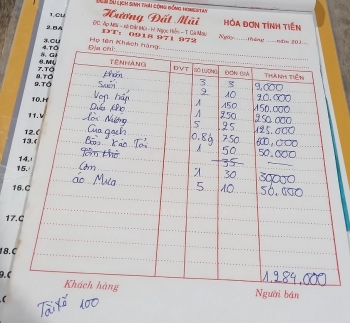 ĐIỂM DU LỊCH SINH THÁI CỘNG ĐỒNG HOMESTAY
Hương Đất Mũi
HÓA ĐƠN TÍNH TIỀN
ĐT: 0918 971 972
Ngày......tháng......năm 201...
Họ tên Khách hàng:
Địa chỉ:
TÊN HÀNG ĐVT SỐ LƯỢNG ĐƠN GIÁ THÀNH TIỀN
Khăn 3 3 9,000
Suối 2 10 20.000
Vọp hấp 1 150 150.000
1 250 250.000
Nướng 5 25 125.000
Cua gạch 0.8g 750 600,000
Xào Tỏi 1 50 50.000
35
Cơm 1 30 30000
áo Mưa 5 10 50.000
1.284.000
Khách hàng Người bán
Tài xế 100
1.CU
2.BA
3.CU
4.TÔ
5. GI
6.MỰ
7.TÔ
8.TÔ
9.TÔ
10.H
11.V
12.C
13.C
14.
15.
16.C
17.C
18.C